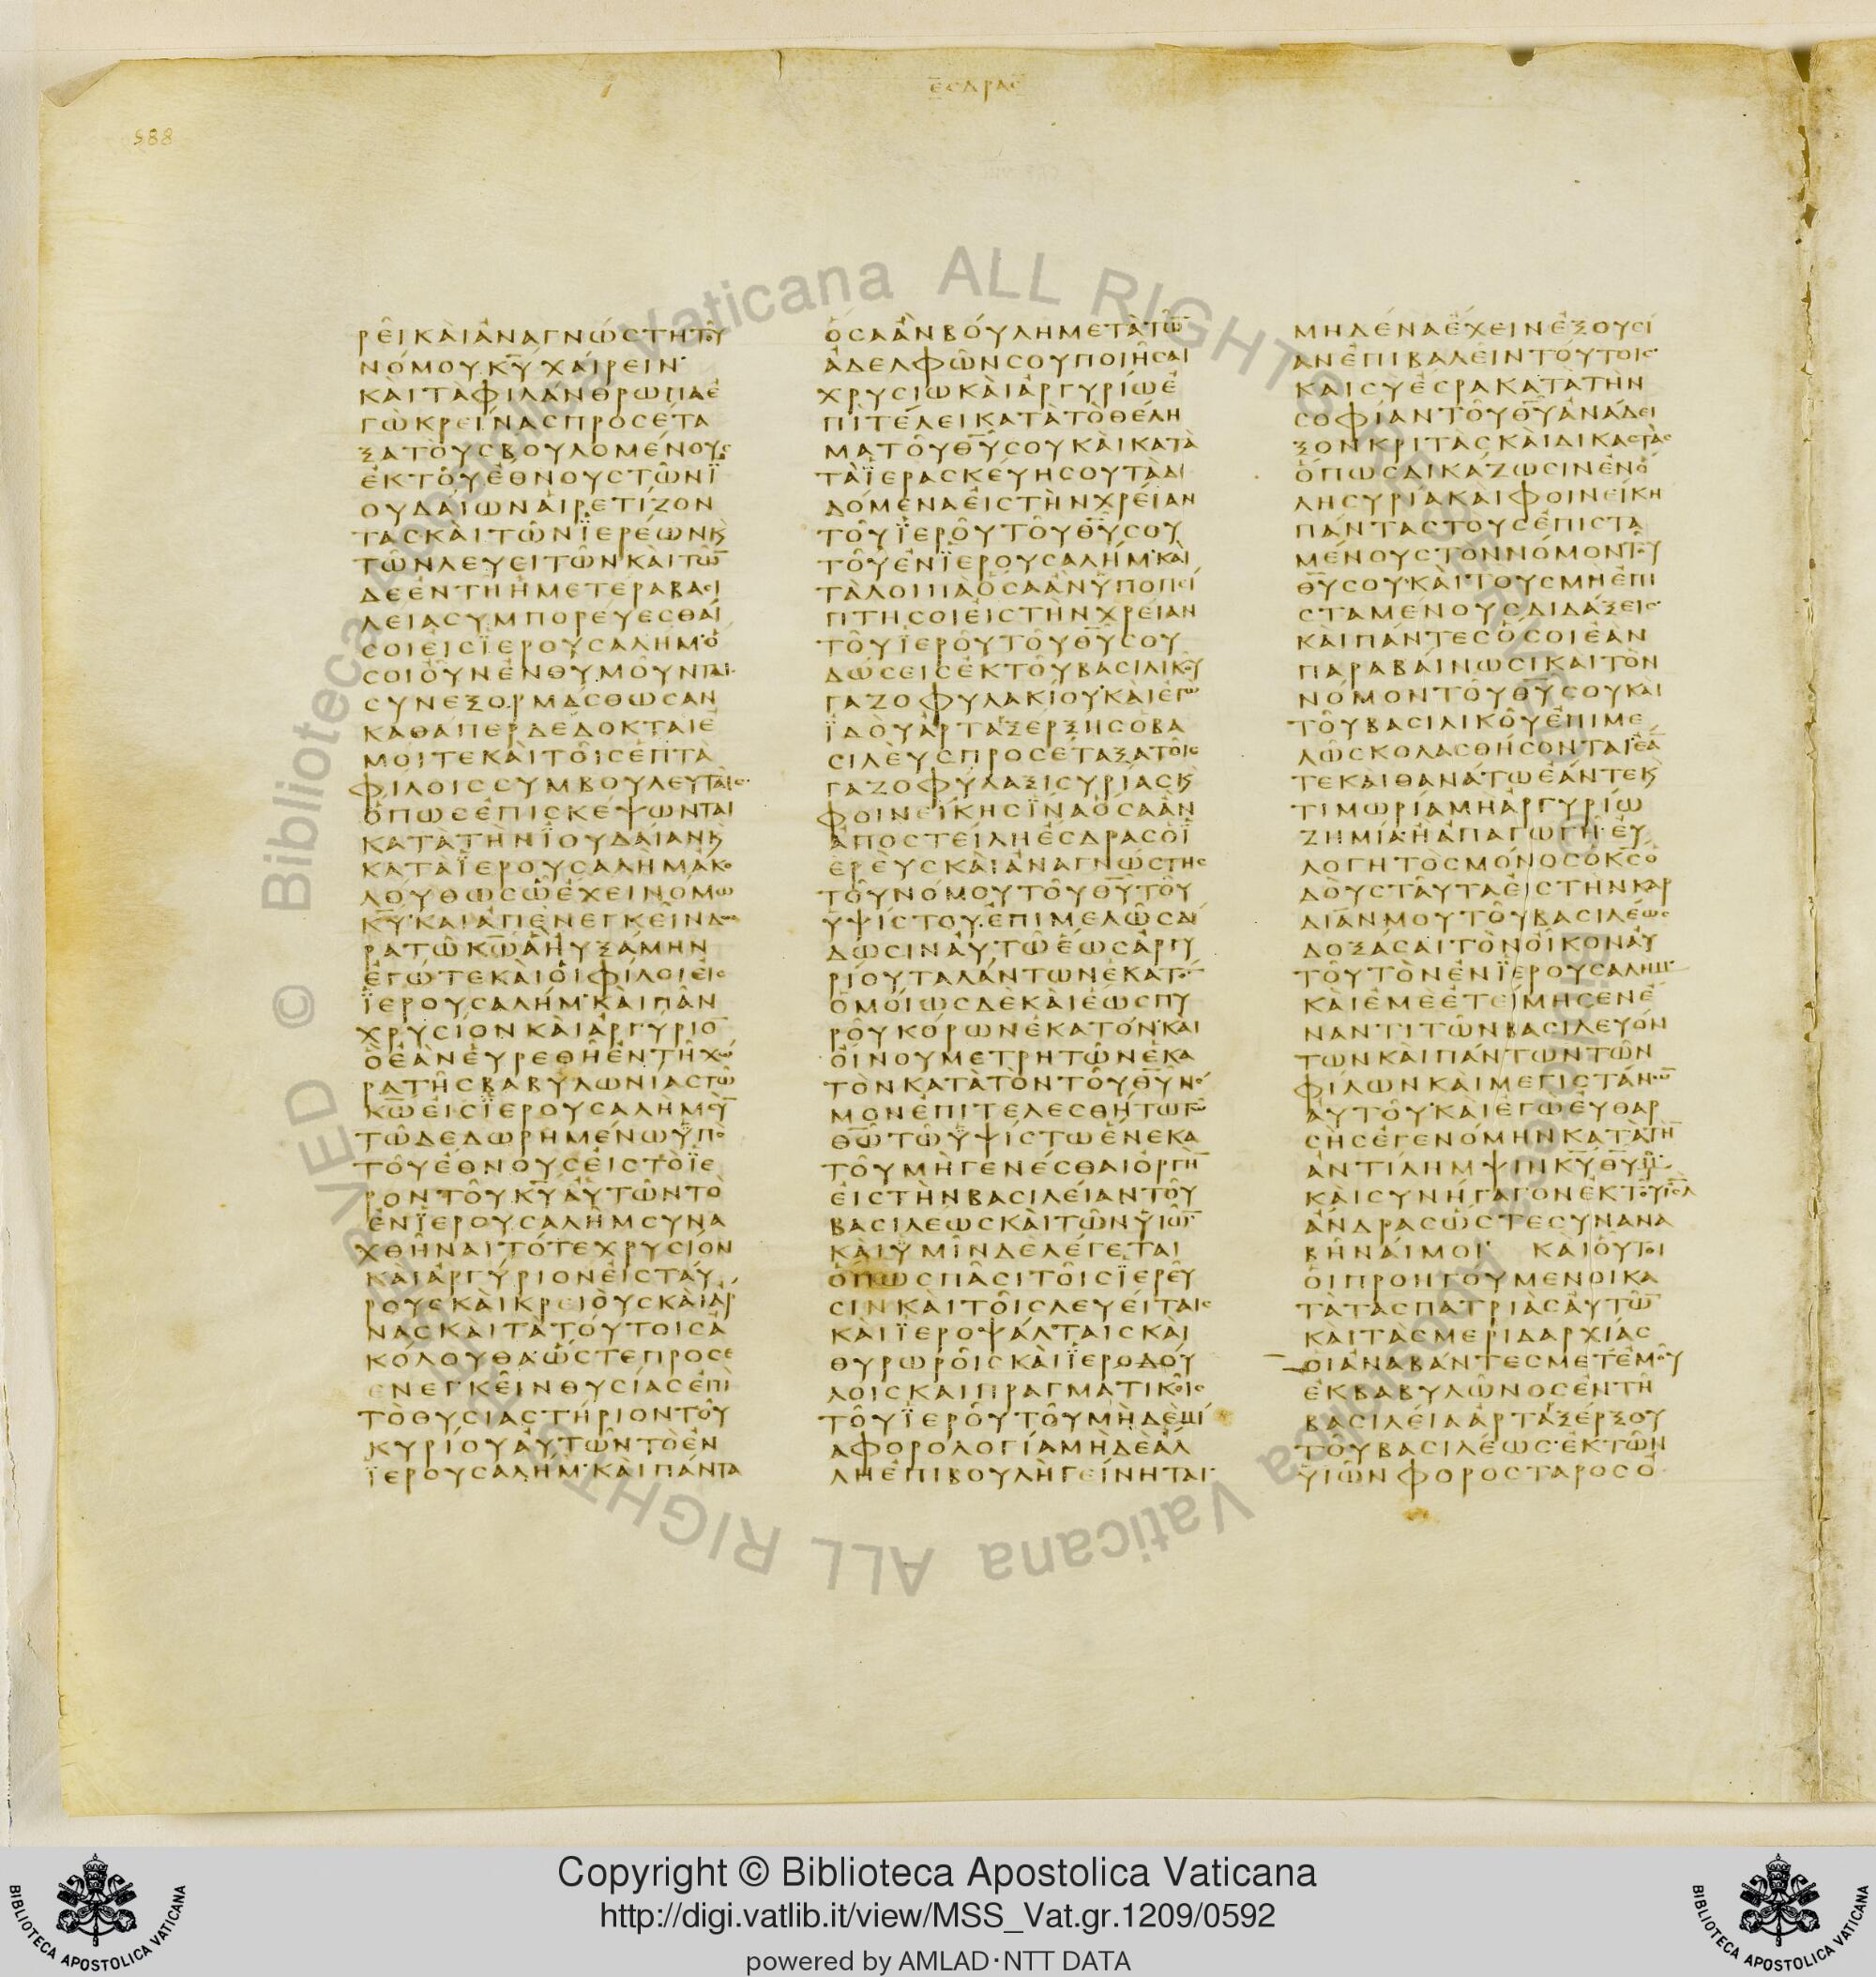 ΕΣΔΡΑΣ
588
ΡΕΙΚΑΙΑΝΑΓΝΩΣΤΗΤΟΥ
ΝΟΜΟΥΚΥΧΑΙΡΕΙΝ
ΚΑΙΤΑΦΙΛΑΝΘΡΩΠΑΕ
ΓΩΚΡΕΙΝΑΣΠΡΟΣΕΤΑ
ΞΑΤΟΥΣΒΟΥΛΟΜΕΝΟΥΣ
ΕΚΤΟΥΕΘΝΟΥΣΤΩΝΪ
ΟΥΔΑΙΩΝΑΙΡΕΤΙΖΟΝ
ΤΑΣΚΑΙΤΩΝΪΕΡΕΩΝΚ
ΤΩΝΛΕΥΕΙΤΩΝΚΑΙΤΩ
ΔΕΕΝΤΗΗΜΕΤΕΡΑΒΑΣΙ
ΛΕΙΑΣΥΜΠΟΡΕΥΕΣΘΑΙ
ΣΟΙΕΙΣΪΕΡΟΥΣΑΛΗΜΟ
ΣΟΙΟΥΝΕΝΘΥΜΟΥΝΤΑΙ
ΣΥΝΕΞΟΡΜΑΣΘΩΣΑΝ
ΚΑΘΑΠΕΡΔΕΔΟΚΤΑΙΕ
ΜΟΙΤΕΚΑΙΤΟΙΣΕΠΤΑ
ΦΙΛΟΙΣΣΥΜΒΟΥΛΕΥΤΑΙΣ
ΟΠΩΣΕΠΙΣΚΕΨΩΝΤΑΙ
ΚΑΤΑΤΗΝΪΟΥΔΑΙΑΝΚ
ΚΑΤΑΪΕΡΟΥΣΑΛΗΜΑΚΟ
ΛΟΥΘΩΣΩΕΧΕΙΝΟΜΩ
ΚΥΚΑΙΑΠΕΝΕΓΚΕΙΝΔΩ
ΡΑΤΩΚΩΑΗΥΞΑΜΗΝ
ΕΓΩΤΕΚΑΙΟΙΦΙΛΟΙΕΙΣ
ΪΕΡΟΥΣΑΛΗΜΚΑΙΠΑΝ
ΧΡΥΣΙΟΝΚΑΙΑΡΓΥΡΙΟ
ΟΕΑΝΕΥΡΕΘΗΕΝΤΗΧΩ
ΡΑΤΗΣΒΑΒΥΛΩΝΙΑΣΤΩ
ΚΩΕΙΣΪΕΡΟΥΣΑΛΗΜΣΥ
ΤΩΔΕΔΩΡΗΜΕΝΩΫΠΟ
ΤΟΥΕΘΝΟΥΣΕΙΣΤΟΪΕ
ΡΟΝΤΟΥΚΥΑΥΤΩΝΤΟ
ΕΝΪΕΡΟΥΣΑΛΗΜΣΥΝΑ
ΧΘΗΝΑΙΤΟΤΕΧΡΥΣΙΟΝ
ΚΑΙΑΡΓΥΡΙΟΝΕΙΣΤΑΥ
ΡΟΥΣΚΑΙΚΡΕΙΟΥΣΚΑΙΑΡ
ΝΑΣΚΑΙΤΑΤΟΥΤΟΙΣΑ
ΚΟΛΟΥΘΑΩΣΤΕΠΡΟΣΕ
ΕΝΕΓΚΕΙΝΘΥΣΙΑΣΕΠΙ
ΤΟΘΥΣΙΑΣΤΗΡΙΟΝΤΟΥ
ΚΥΡΙΟΥΑΥΤΩΝΤΟΕΝ
ΪΕΡΟΥΣΑΛΗΜΚΑΙΠΑΝΤΑ
ΟΣΑΑΝΒΟΥΛΗΜΕΤΑΤΩ
ΑΔΕΛΦΩΝΣΟΥΠΟΙΗΣΑΙ
ΧΡΥΣΙΩΚΑΙΑΡΓΥΡΙΩΕ
ΠΙΤΕΛΕΙΚΑΤΑΤΟΘΕΛΗ
ΜΑΤΟΥΘΥΣΟΥΚΑΙΚΑΤΑ
ΤΑΪΕΡΑΣΚΕΥΗΣΟΥΤΑΔΙ
ΔΟΜΕΝΑΕΙΣΤΗΝΧΡΕΙΑΝ
ΤΟΥΪΕΡΟΥΤΟΥΘΥΣΟΥ
ΤΟΥΕΝΪΕΡΟΥΣΑΛΗΜΚΑΙ
ΤΑΛΟΙΠΑΟΣΑΑΝΫΠΟΠΕΙ
ΠΤΗΣΟΙΕΙΣΤΗΝΧΡΕΙΑΝ
ΤΟΥΪΕΡΟΥΤΟΥΘΥΣΟΥ
ΔΩΣΕΙΣΕΚΤΟΥΒΑΣΙΛΙΚΟΥ
ΓΑΖΟΦΥΛΑΚΙΟΥΚΑΙΕΓΩ
ΪΔΟΥΑΡΤΑΞΕΡΞΗΣΟΒΑ
ΣΙΛΕΥΣΠΡΟΣΕΤΑΞΑΤΟΙΣ
ΓΑΖΟΦΥΛΑΞΙΣΥΡΙΑΣΚ
ΦΟΙΝΕΙΚΗΣΪΝΑΟΣΑΑΝ
ΑΠΟΣΤΕΙΛΗΕΣΔΡΑΣΟΪ
ΕΡΕΥΣΚΑΙΑΝΑΓΝΩΣΤΗΣ
ΤΟΥΝΟΜΟΥΤΟΥΘΥΤΟΥ
ΥΨΙΣΤΟΥΕΠΙΜΕΛΩΣΔΙ
ΔΩΣΙΝΑΥΤΩΕΩΣΑΡΓΥ
ΡΙΟΥΤΑΛΑΝΤΩΝΕΚΑΤΟ
ΟΜΟΙΩΣΔΕΚΑΙΕΩΣΠΥ
ΡΟΥΚΟΡΩΝΕΚΑΤΟΝΚΑΙ
ΟΙΝΟΥΜΕΤΡΗΤΩΝΕΚΑ
ΤΟΝΚΑΤΑΤΟΝΤΟΥΘΥΝΟ
ΜΟΝΕΠΙΤΕΛΕΣΘΗΤΩΤΩ
ΘΩΤΩΫΨΙΣΤΩΕΝΕΚΑ
ΤΟΥΜΗΓΕΝΕΣΘΑΙΟΡΓΗ
ΕΙΣΤΗΝΒΑΣΙΛΕΙΑΝΤΟΥ
ΒΑΣΙΛΕΩΣΚΑΙΤΩΝΥΙΩ
ΚΑΙΫΜΙΝΔΕΛΕΓΕΤΑΙ
ΟΠΩΣΠΑΣΙΤΟΙΣΪΕΡΕΥ
ΣΙΝΚΑΙΤΟΙΣΛΕΥΕΙΤΑΙΣ
ΚΑΙΪΕΡΟΨΑΛΤΑΙΣΚΑΙ
ΘΥΡΩΡΟΙΣΚΑΙΪΕΡΟΔΟΥ
ΛΟΙΣΚΑΙΠΡΑΓΜΑΤΙΚΟΙΣ
ΤΟΥΪΕΡΟΥΤΟΥΜΗΔΕΜΙ
ΑΦΟΡΟΛΟΓΙΑΜΗΔΕΑΛ
ΛΗΕΠΙΒΟΥΛΗΓΕΙΝΗΤΑΙ
ΜΗΔΕΝΑΕΧΕΙΝΕΞΟΥΣΙ
ΑΝΕΠΙΒΑΛΕΙΝΤΟΥΤΟΙΣ
ΚΑΙΣΥΕΣΡΑΚΑΤΑΤΗΝ
ΣΟΦΙΑΝΤΟΥΘΥΑΝΑΔΕΙ
ΞΟΝΚΡΙΤΑΣΚΑΙΔΙΚΑΣΤΑΣ
ΟΠΩΣΔΙΚΑΖΩΣΙΝΕΝΟ
ΛΗΣΥΡΙΑΚΑΙΦΟΙΝΕΙΚΗ
ΠΑΝΤΑΣΤΟΥΣΕΠΙΣΤΑ
ΜΕΝΟΥΣΤΟΝΝΟΜΟΝΤΟΥ
ΘΥΣΟΥΚΑΙΤΟΥΣΜΗΕΠΙ
ΣΤΑΜΕΝΟΥΣΔΙΔΑΞΕΙΣ
ΚΑΙΠΑΝΤΕΣΟΣΟΙΕΑΝ
ΠΑΡΑΒΑΙΝΩΣΙΚΑΙΤΟΝ
ΝΟΜΟΝΤΟΥΘΥΣΟΥΚΑΙ
ΤΟΥΒΑΣΙΛΙΚΟΥΕΠΙΜΕ
ΛΩΣΚΟΛΑΣΘΗΣΟΝΤΑΙΕΑ
ΤΕΚΑΙΘΑΝΑΤΩΕΑΝΤΕΚ
ΤΙΜΩΡΙΑΜΗΑΡΓΥΡΙΩ
ΖΗΜΙΑΗΑΠΑΓΩΓΗΕΥ
ΛΟΓΗΤΟΣΜΟΝΟΣΟΚΣΟ
ΔΟΥΣΤΑΥΤΑΕΙΣΤΗΝΚΑΡ
ΔΙΑΝΜΟΥΤΟΥΒΑΣΙΛΕΩΣ
ΔΟΞΑΣΑΙΤΟΝΟΙΚΟΝΑΥ
ΤΟΥΤΟΝΕΝΪΕΡΟΥΣΑΛΗΜ
ΚΑΙΕΜΕΕΤΕΙΜΗΣΕΝΕ
ΝΑΝΤΙΤΩΝΒΑΣΙΛΕΥΟΝ
ΤΩΝΚΑΙΠΑΝΤΩΝΤΩΝ
ΦΙΛΩΝΚΑΙΜΕΓΙΣΤΑΝΩ
ΑΥΤΟΥΚΑΙΕΓΩΕΥΘΑΡ
ΣΗΣΕΓΕΝΟΜΗΝΚΑΤΑΤΗ
ΑΝΤΙΛΗΜΨΙΝΚΥΘΥ
ΚΑΙΣΥΝΗΓΑΓΟΝΕΚΤΟΥΙΣΛ
ΑΝΔΡΑΣΩΣΤΕΣΥΝΑΝΑ
ΒΗΝΑΙΜΟΙ ΚΑΙΟΥΤΟΙ
ΟΙΠΡΟΗΓΟΥΜΕΝΟΙΚΑ
ΤΑΤΑΣΠΑΤΡΙΑΣΑΥΤΩ
ΚΑΙΤΑΣΜΕΡΙΔΑΡΧΙΑΣ
ΟΙΑΝΑΒΑΝΤΕΣΜΕΤΕΜΟΥ
ΕΚΒΑΒΥΛΩΝΟΣΕΝΤΗ
ΒΑΣΙΛΕΙΑΑΡΤΑΞΕΡΞΟΥ
ΤΟΥΒΑΣΙΛΕΩΣΕΚΤΩΝ
ΥΙΩΝΦΟΡΟΣΤΑΡΟΣΟ
© Biblioteca Apostolica Vaticana ALL RIGHTS RESERVED
© Biblioteca Apostolica Vaticana ALL RIGHTS RESERVED
Copyright © Biblioteca Apostolica Vaticana
http://digi.vatlib.it/view/MSS_Vat.gr.1209/0592
powered by AMLAD·NTT DATA
BIBLIOTECA APOSTOLICA VATICANA
BIBLIOTECA APOSTOLICA VATICANA